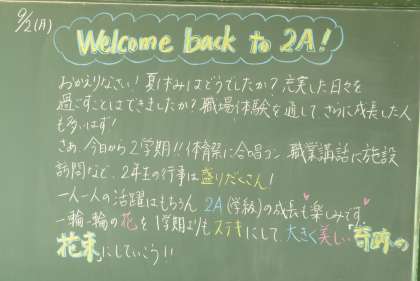 9/2(月)
Welcome back to 2A!
おかえりなさい！夏休みはどうでしたか？充実した日々を
過ごすことはできましたか？職場体験を通して、さらに成長した人
も多いはず！
さあ、今日から2学期！！体育祭に合唱コン、職業講話に施設
訪問など、2年生の行事は盛りだくさん！
一人一人の活躍はもちろん、2A(学級)の成長も楽しみです。
一輪一輪の花を1学期よりもステキにして、大きく美しい「奇跡の
花束」にしていこう！！